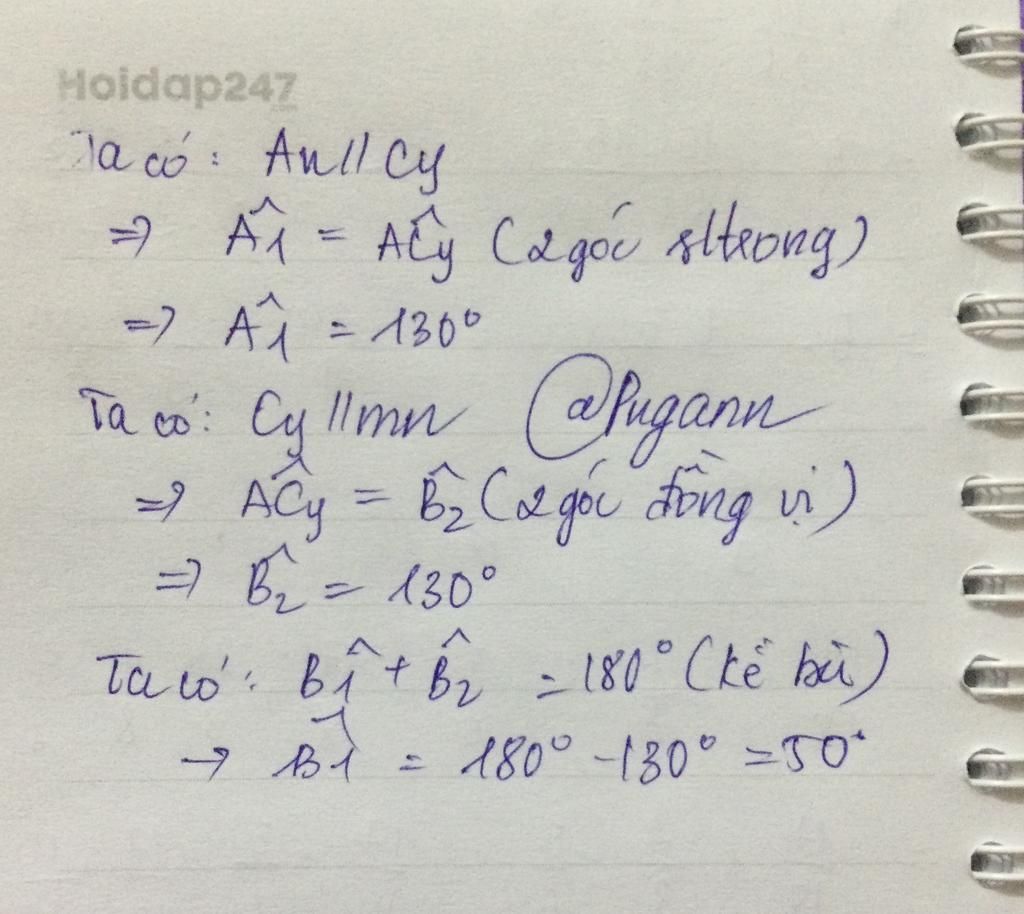 Hoidap247
Ta có: An // Cy
=> Â1 = AĈy (2 góc sltrong)
=> Â1 = 130°
Ta có: Cy // mn @Pugann
=> AĈy = B̂2 (2 góc đồng vị)
=> B̂2 = 130°
Ta có: B̂1 + B̂2 = 180° (kề bù)
→ B̂1 = 180° - 130° = 50°